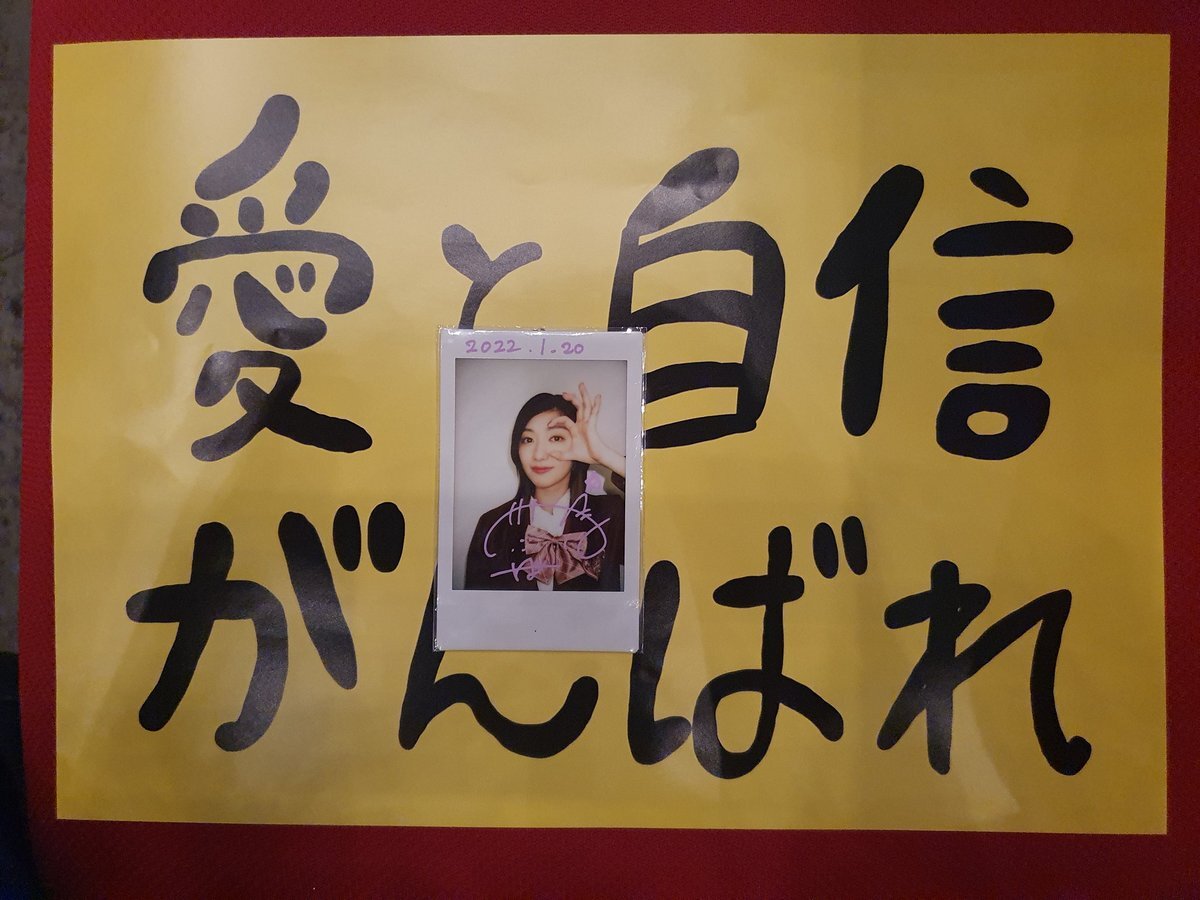 愛と自信
2022.1.20
がんばれ